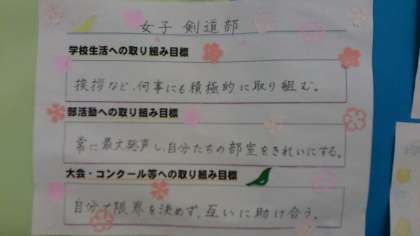 女子 剣道部
学校生活への取り組み目標
挨拶など、何事にも積極的に取り組む。
部活動への取り組み目標
常に最大発声し、自分たちの部室をきれいにする。
大会・コンクール等への取り組み目標
自分で限界を決めず、互いに助け合う。